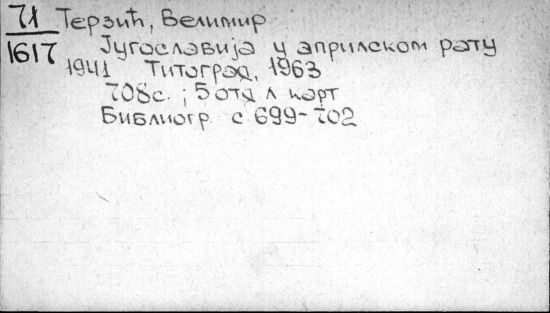 71 Терзић, Велимир
1617 Југославија у априлском рату
1941 Титоград, 1963
708с. ; 5 отд л карт
Библиогр с 699-702